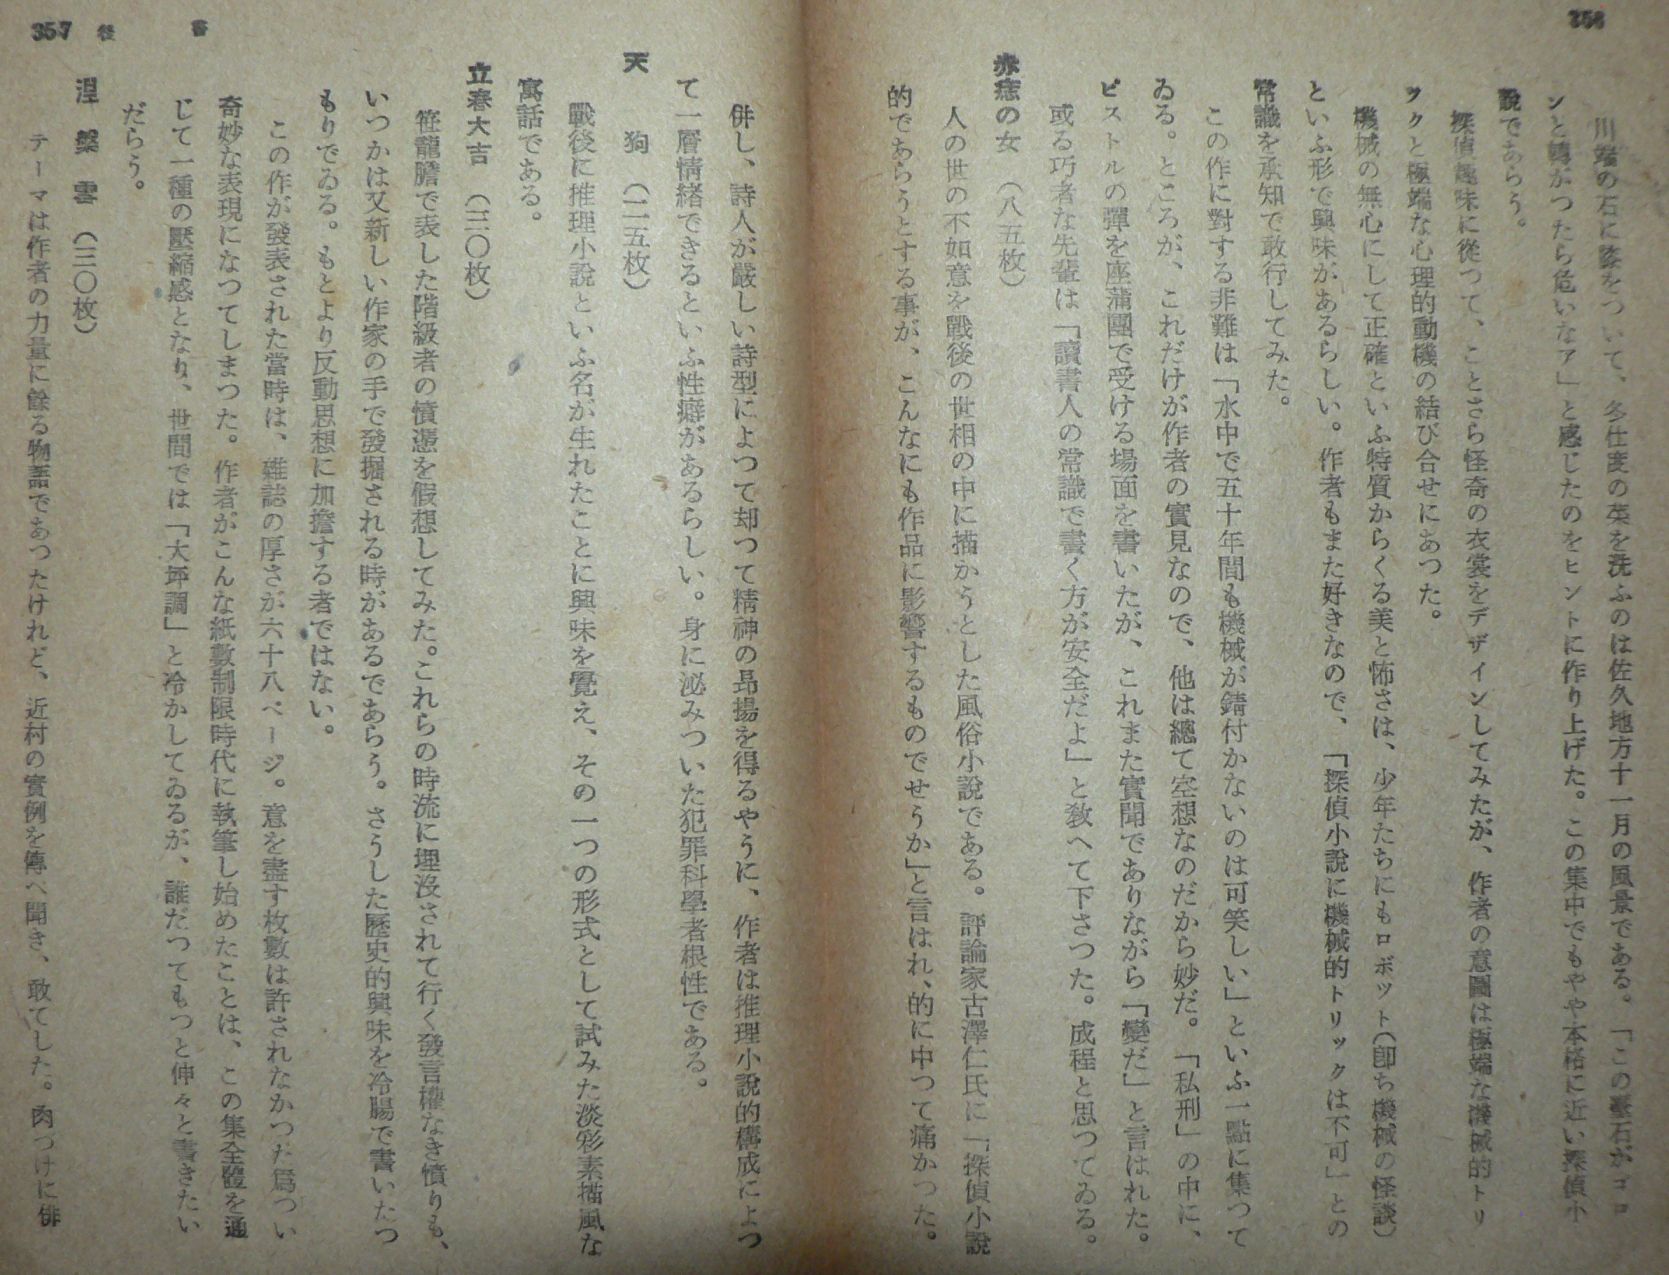 356
川端の石に膝をついて、冬仕度の菜を洗ふのは佐久地方十一月の風景である。「この臺石がゴロ
ンと轉がつたら危いなア」と感じたのをヒントに作り上げた。この集中でもやや本格に近い探偵小
說であらう。
探偵趣味に從つて、ことさら怪奇の衣裳をデザインしてみたが、作者の意圖は極端な機械的トリ
ツクと極端な心理的動機の結び合せにあつた。
機械の無心にして正確といふ特質からくる美と怖さは、少年たちにもロボツト（卽ち機械の怪談）
といふ形で興味があるらしい。作者もまた好きなので、「探偵小說に機械的トリックは不可」との
常識を承知で敢行してみた。
この作に對する非難は「水中で五十年間も機械が錆付かないのは可笑しい」といふ一點に集つて
ゐる。ところが、これだけが作者の實見なので、他は總て空想なのだから妙だ。「私刑」の中に、
ピストルの彈を座蒲團で受ける場面を書いたが、これまた實聞でありながら「變だ」と言はれた。
或る巧者な先輩は「讀書人の常識で書く方が安全だよ」と敎へて下さつた。成程と思つてゐる。
赤痣の女　（八五枚）
人の世の不如意を戰後の世相の中に描かうとした風俗小說である。評論家古澤仁氏に「探偵小說
的であらうとする事が、こんなにも作品に影響するものでせうか」と言はれ、的に中つて痛かつた。
併し、詩人が嚴しい詩型によつて却つて精神の昂揚を得るやうに、作者は推理小說的構成によつ
て一層情緖できるといふ性癖があるらしい。身に泌みついた犯罪科學者根性である。
天　狗　（二五枚）
戰後に推理小說といふ名が生れたことに興味を覺え、その一つの形式として試みた淡彩素描風な
寓話である。
立春大吉　（三〇枚）
笹龍膽で表した階級者の憤懣を假想してみた。これらの時流に埋沒されて行く發言權なき憤りも、
いつかは又新しい作家の手で發掘される時があるであらう。さうした歷史的興味を冷腸で書いたつ
もりでゐる。もとより反動思想に加擔する者ではない。
この作が發表された當時は、雜誌の厚さが六十八ページ。意を盡す枚數は許されなかつた爲つい
奇妙な表現になつてしまつた。作者がこんな紙數制限時代に執筆し始めたことは、この集全體を通
じて一種の壓縮感となり、世間では「大坪調」と冷かしてゐるが、誰だつてもつと伸々と書きたい
だらう。
涅　槃　雪　（三〇枚）
テーマは作者の力量に餘る物語であつたけれど、近村の實例を傳へ聞き、敢てした。肉づけに俳
357　後　書